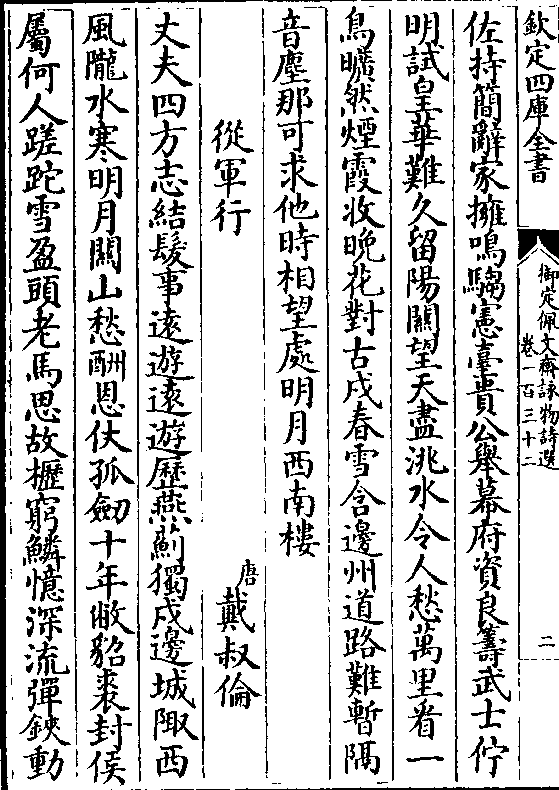 欽定四庫全書
御定佩文齋詠物詩選
卷一百三十二
二
佐持簡辭家擁鳴騶憲臺貴公舉幕府資良籌武士佇
明試皇華難久留陽關望天盡洮水令人愁萬里看一
鳥曠然煙霞收晚花對古戍春雪含邊州道路難暫隔
音塵那可求他時相望處明月西南樓
從軍行
唐戴叔倫
丈夫四方志結髮事遠遊遠遊歷燕薊獨戍邊城陬西
風隴水寒明月關山愁酬恩仗孤劒十年敝貂裘封侯
屬何人蹉跎雪盈頭老馬思故櫪窮鱗憶深流彈鋏動